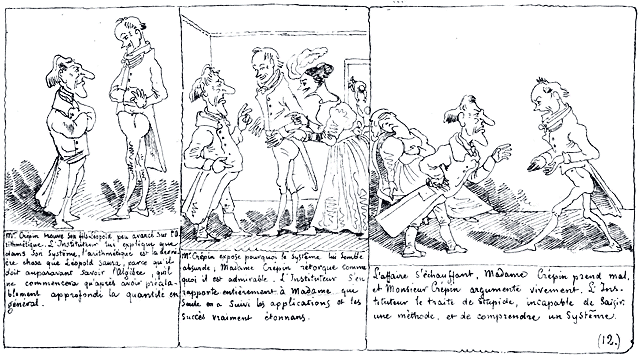 Mr. Crépin trouve son fils Léopold peu avancé sur l'A-
rithmétique. L'Instituteur lui explique que
dans son Système, l'arithmétique est la derni-
ère chose que Léopold saura, parce qu'il
doit auparavant savoir l'Algèbre, qu'il
ne commencera qu'après avoir préala-
blement approfondi la quantité en
général.
Mr. Crépin expose pourquoi le système lui semble
absurde, Madame Crépin rétorque comme
quoi il est admirable. L'Instituteur s'en
rapporte entièrement à Madame, que
seule en a suivi les applications et les
succès vraiment étonnans.
L'affaire s'échauffant, Madame Crépin prend mal,
et Monsieur Crépin argumente vivement. L'Ins-
tituteur le traite de stupide, incapable de saisir
une méthode, et de comprendre un Système.
(12.)